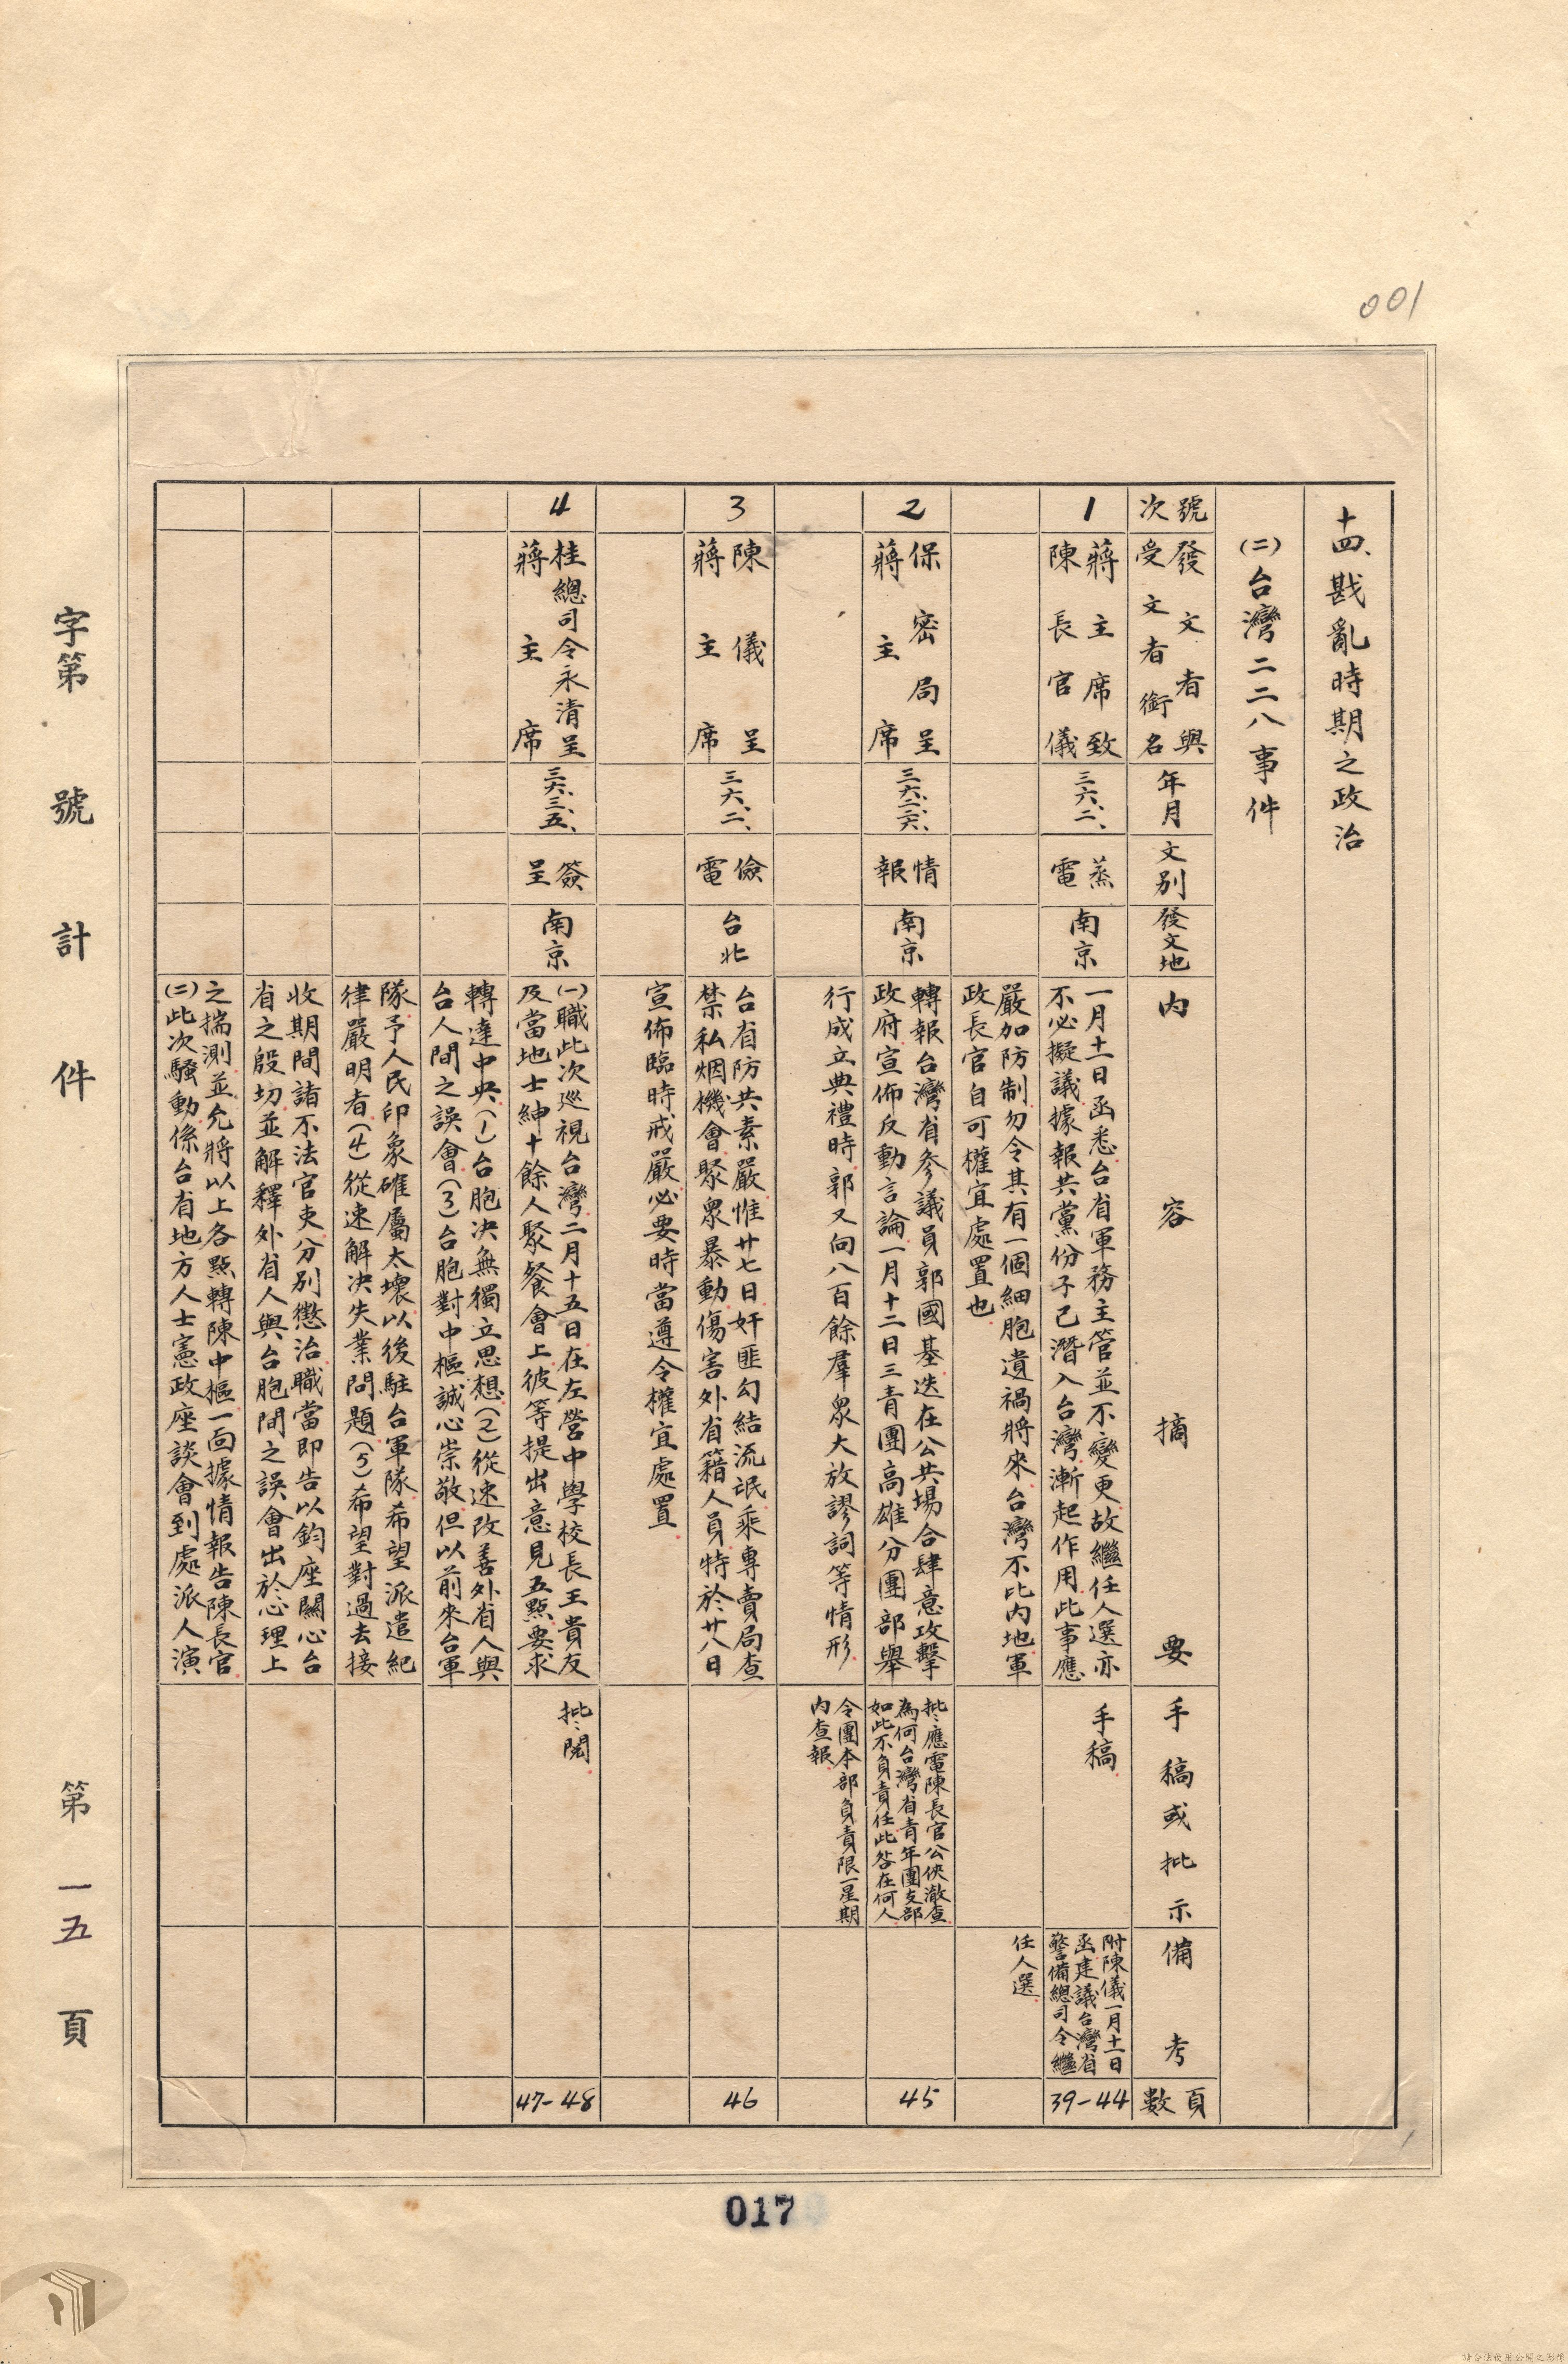 001
十四、戡亂時期之政治
(二)台灣二二八事件
號次
發文者與
受文者銜名
年月
文別
發文地
內容摘要
手稿或批示
備考
頁數
1
蔣主席致
陳長官儀
三六、二、
蒸電
南京
一月十一日函悉台省軍務主管並不變更故繼任人選亦
不必擬議據報共黨份子已潛入台灣漸起作用此事應
嚴加防制勿令其有一個細胞遺禍將來台灣不比內地軍
政長官自可權宜處置也
手稿
附陳儀一月十一日
函建議台灣省
警備總司令繼
任人選
39-44
2
保密局呈
蔣主席
三六、二、六、
情報
南京
轉報台灣省參議員郭國基迭在公共場合肆意攻擊
政府宣佈反動言論一月十二日三青團高雄分團部舉
行成立典禮時郭又向八百餘羣眾大放謬詞等情形
批:應電陳長官公俠澈查
為何台灣省青年團支部
如此不負責任此咎在何人
令團本部負責限一星期
內查報
45
3
陳儀呈
蔣主席
三六、二、
儉電
台北
台省防共素嚴惟廿七日奸匪勾結流氓乘專賣局查
禁私烟機會聚眾暴動傷害外省籍人員特於廿八日
宣佈臨時戒嚴必要時當遵令權宜處置
46
4
桂總司令永清呈
蔣主席
三六、三、五、
簽呈
南京
(一)職此次巡視台灣二月十五日在左營中學校長王貴友
及當地士紳十餘人聚餐會上彼等提出意見五點要求
轉達中央(1)台胞决無獨立思想(2)從速改善外省人與
台人間之誤會(3)台胞對中樞誠心崇敬但以前來台軍
隊予人民印象確屬太壞以後駐台軍隊希望派遣紀
律嚴明者(4)從速解决失業問題(5)希望對過去接
收期間諸不法官吏分別懲治職當即告以鈞座關心台
省之殷切並解釋外省人與台胞間之誤會出於心理上
之揣測並允將以上各點轉陳中樞一面據情報告陳長官
(二)此次騷動係台省地方人士憲政座談會到處派人演
批:閱
47-48
字第號計件
第一五頁
017
請合法使用公開之影像